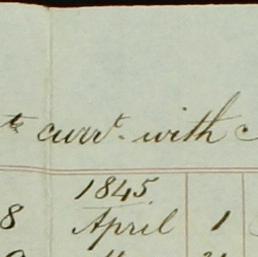 curr.t with
1845
8 April 1